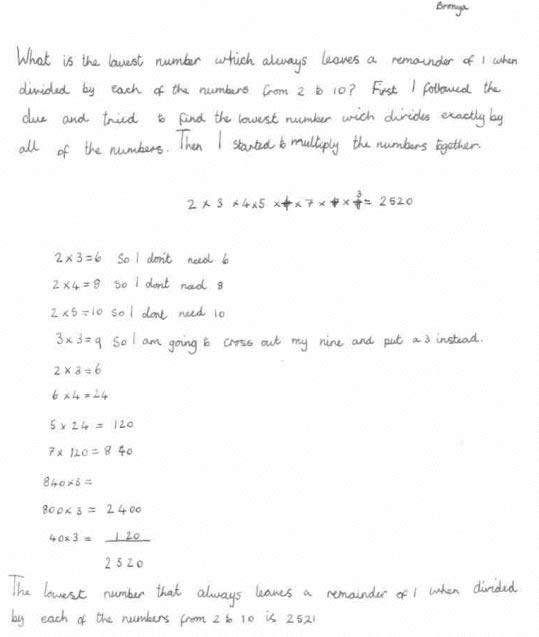 Bronya
What is the lowest number which always leaves a remainder of 1 when
divided by each of the numbers from 2 to 10? First I followed the
clue and tried to find the lowest number wich divides exactly by
all of the numbers. Then I started to multiply the numbers together.
2 × 3 × 4 × 5 × 6 × 7 × 8 × 9 3 = 2520
2 × 3 = 6 So I don't need 6
2 × 4 = 8 So I dont need 8
2 × 5 = 10 so I dont need 10
3 × 3 = 9 So I am going to cross out my nine and put a 3 instead.
2 × 3 = 6
6 × 4 = 24
5 × 24 = 120
7 × 120 = 840
840 × 3 =
800 × 3 = 2400
40 × 3 = 120
2520
The lowest number that always leaves a remainder of 1 when divided
by each of the numbers from 2 to 10 is 2521